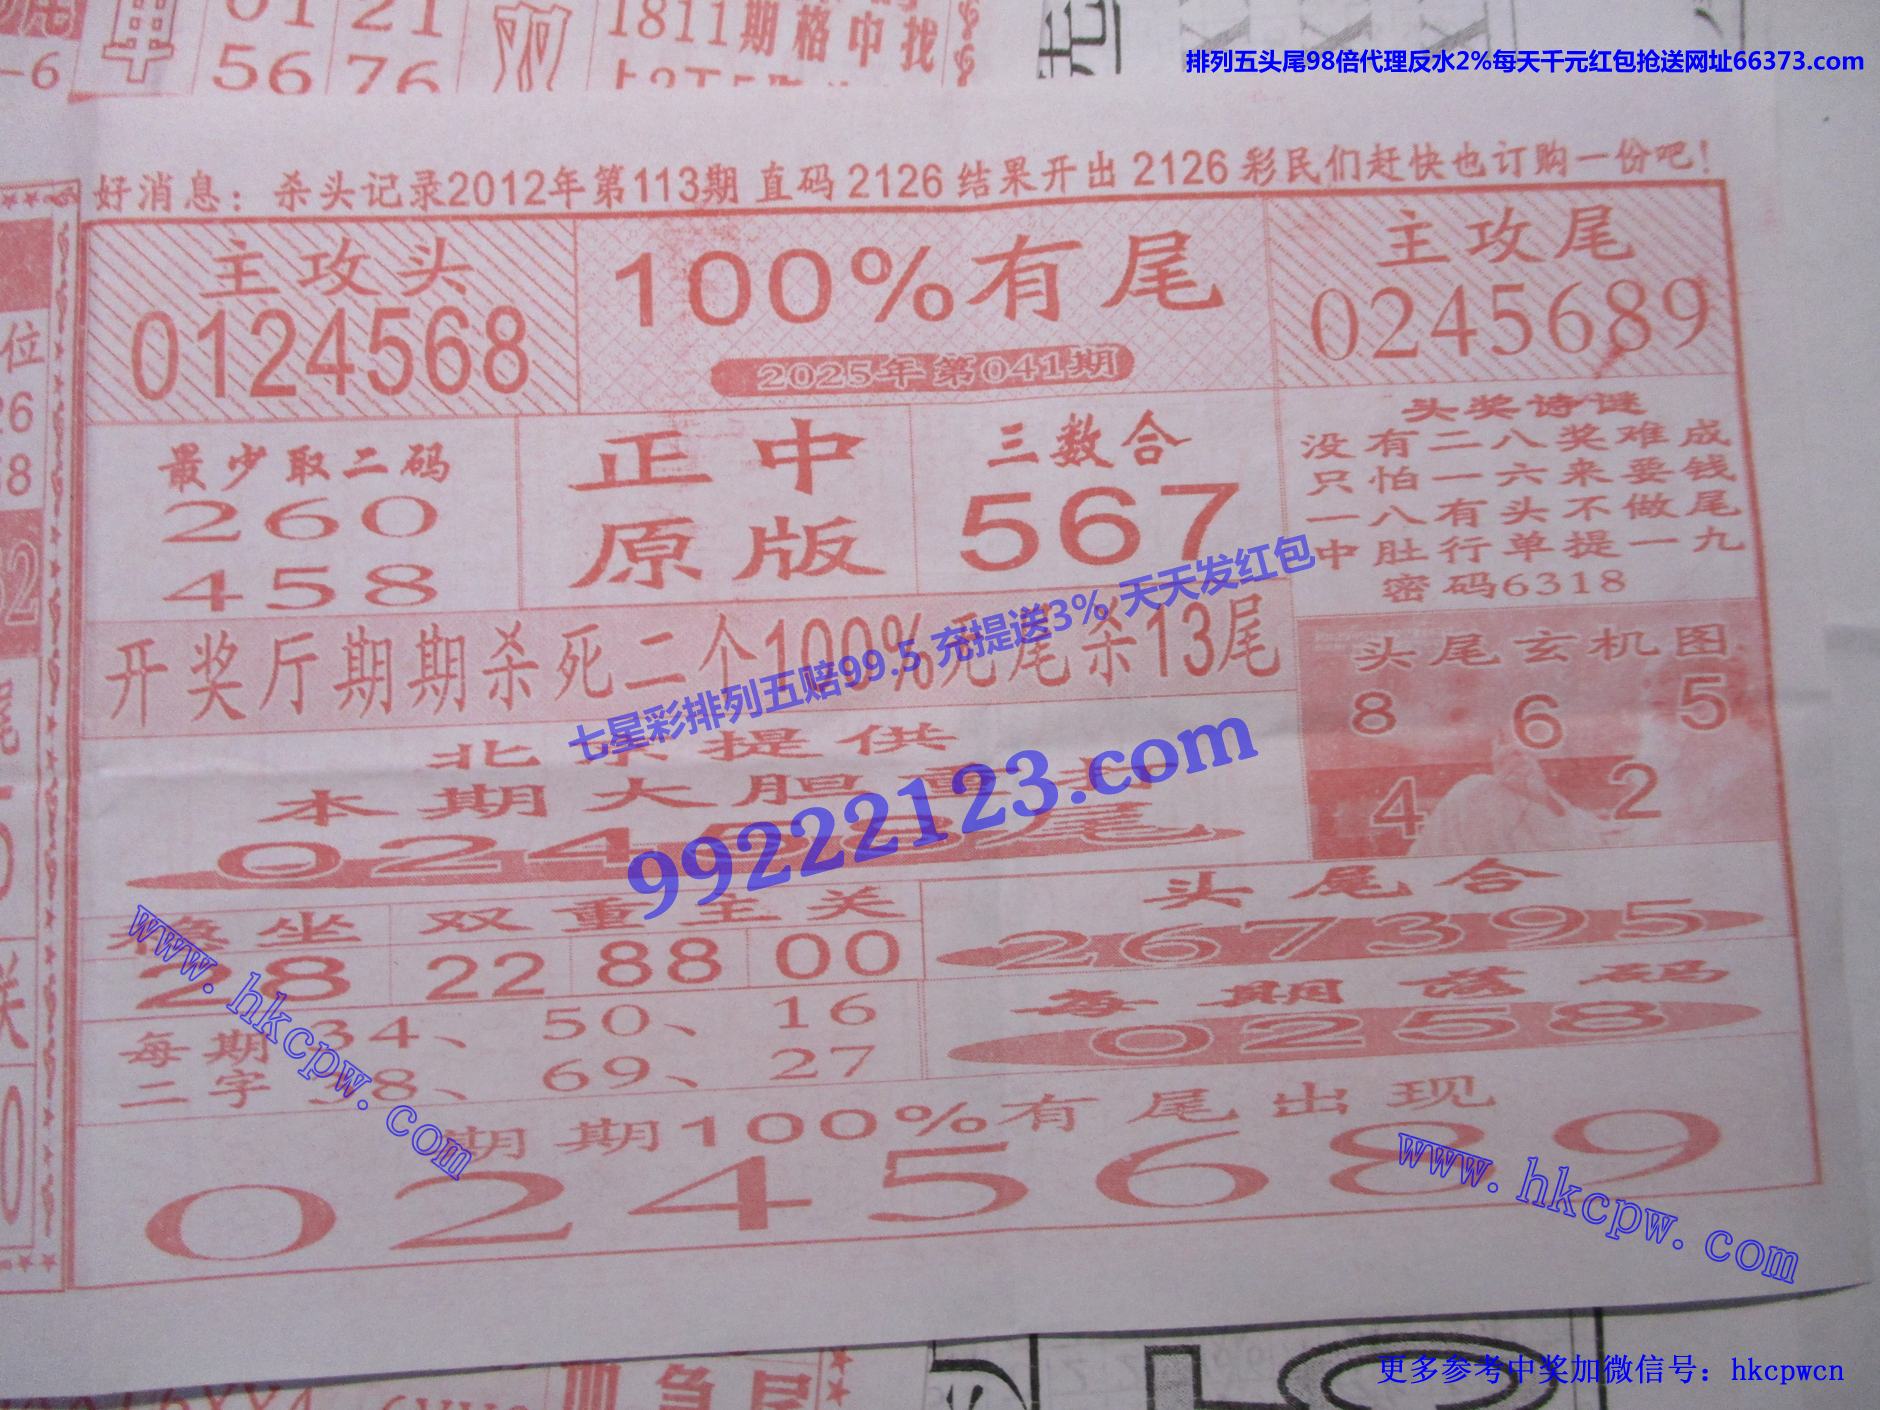 01 21
-6
56 76
1811期格中找
排列五头尾98倍代理反水2%每天千元红包抢送网址66373.com
好消息：杀头记录2012年第113期 直码 2126 结果开出 2126 彩民们赶快也订购一份吧！
主攻头
0124568
100%有尾
2025年第041期
主攻尾
0245689
最少取二码
260
458
正中
原版
三数合
567
头奖诗谜
没有二八奖难成
只怕一六来要钱
一八有头不做尾
中肚行单提一九
密码6318
开奖厅期期杀死二个100%死尾杀13尾
七星彩排列五赔99.5 充提送3% 天天发红包
头尾玄机图
8 6 5
4 2
北京提供
本期大胆
99222123.com
尾
稳坐
28
双重主关
22 88 00
头尾合
267395
每期落码
0258
每期
二字
34、50、16
38、69、27
www.hkcpw.com
期期100%有尾出现
0245689
www.hkcpw.com
更多参考中奖加微信号：hkcpwcn